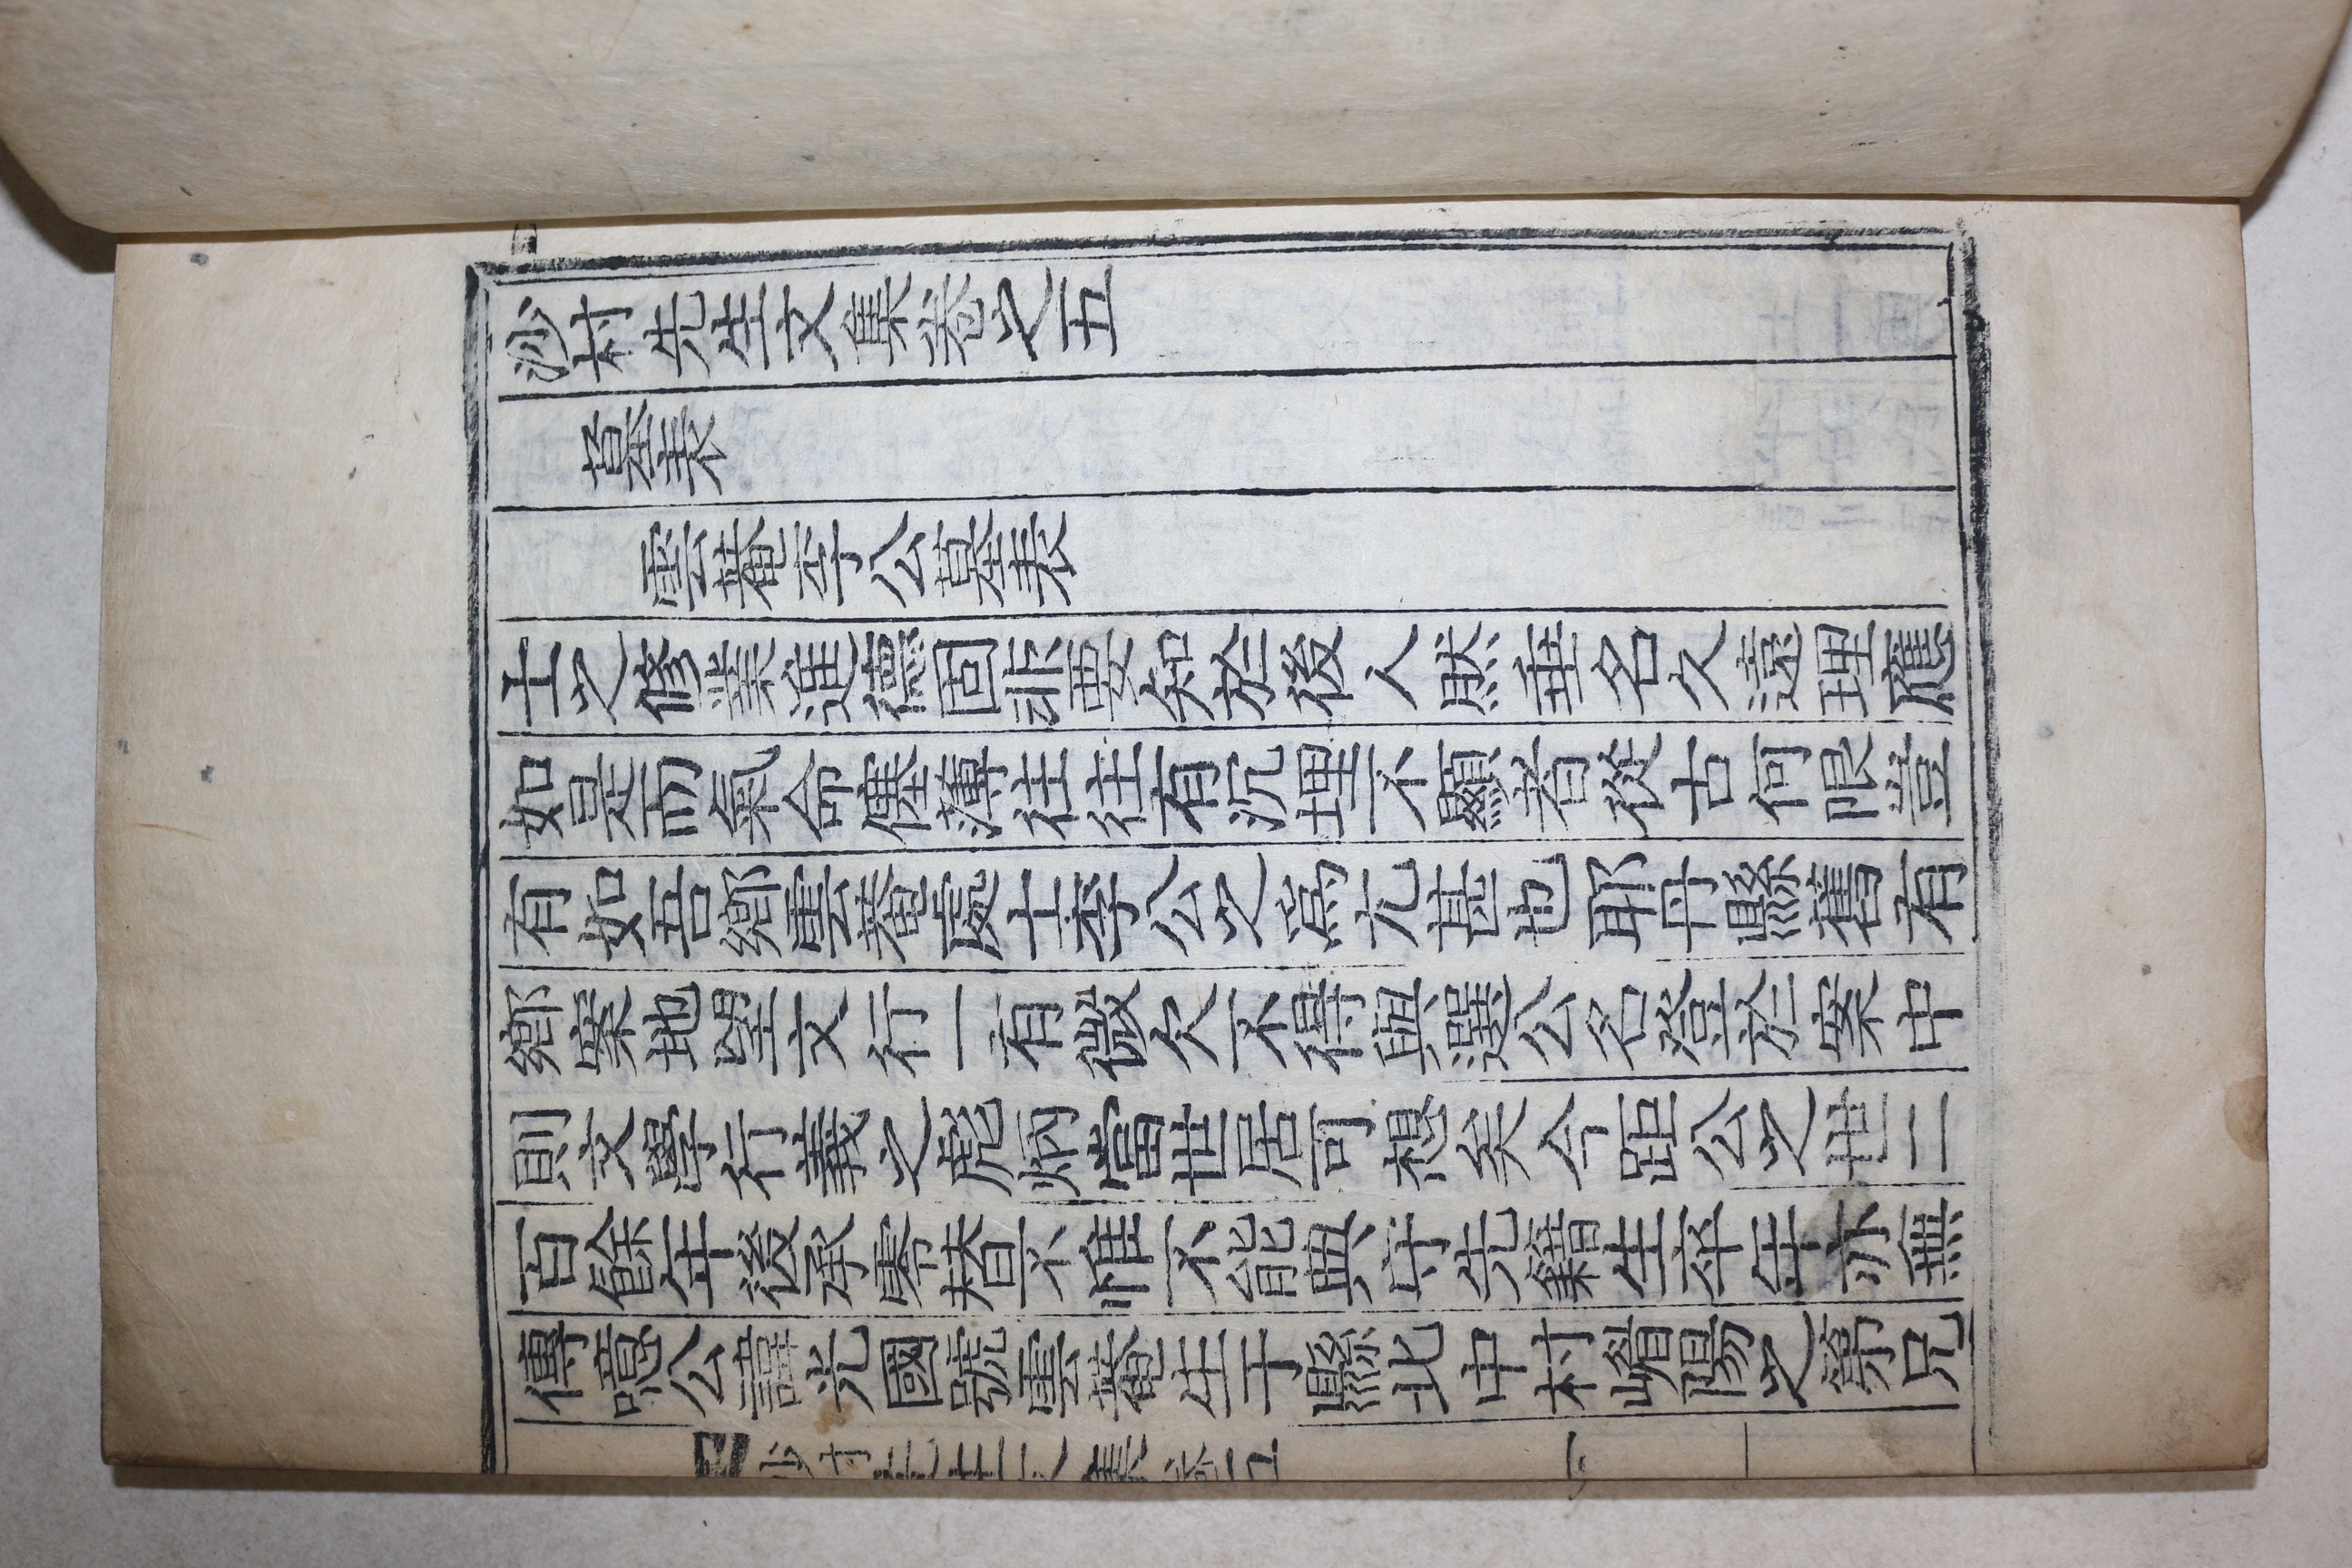 沙村先生文集卷之五
墓表
雲菴李公墓表
士之修業進德固非要知於後人然華名久遠理應
如是而氣命僅薄往往有沉埋不顯者從古何限豈
有如吾鄕雲菴處士李公之爲尤甚也耶丹縣舊有
鄕案地望文行一有微欠不得與選公名登於案中
則文學行義之彪炳當世居可想矣今距公之世二
百餘年後承零替不惟不能典守先籍生卒年亦無
傳噫公諱光國號雲菴生于縣北中村嶜陽之第兄
沙村先生文集卷五